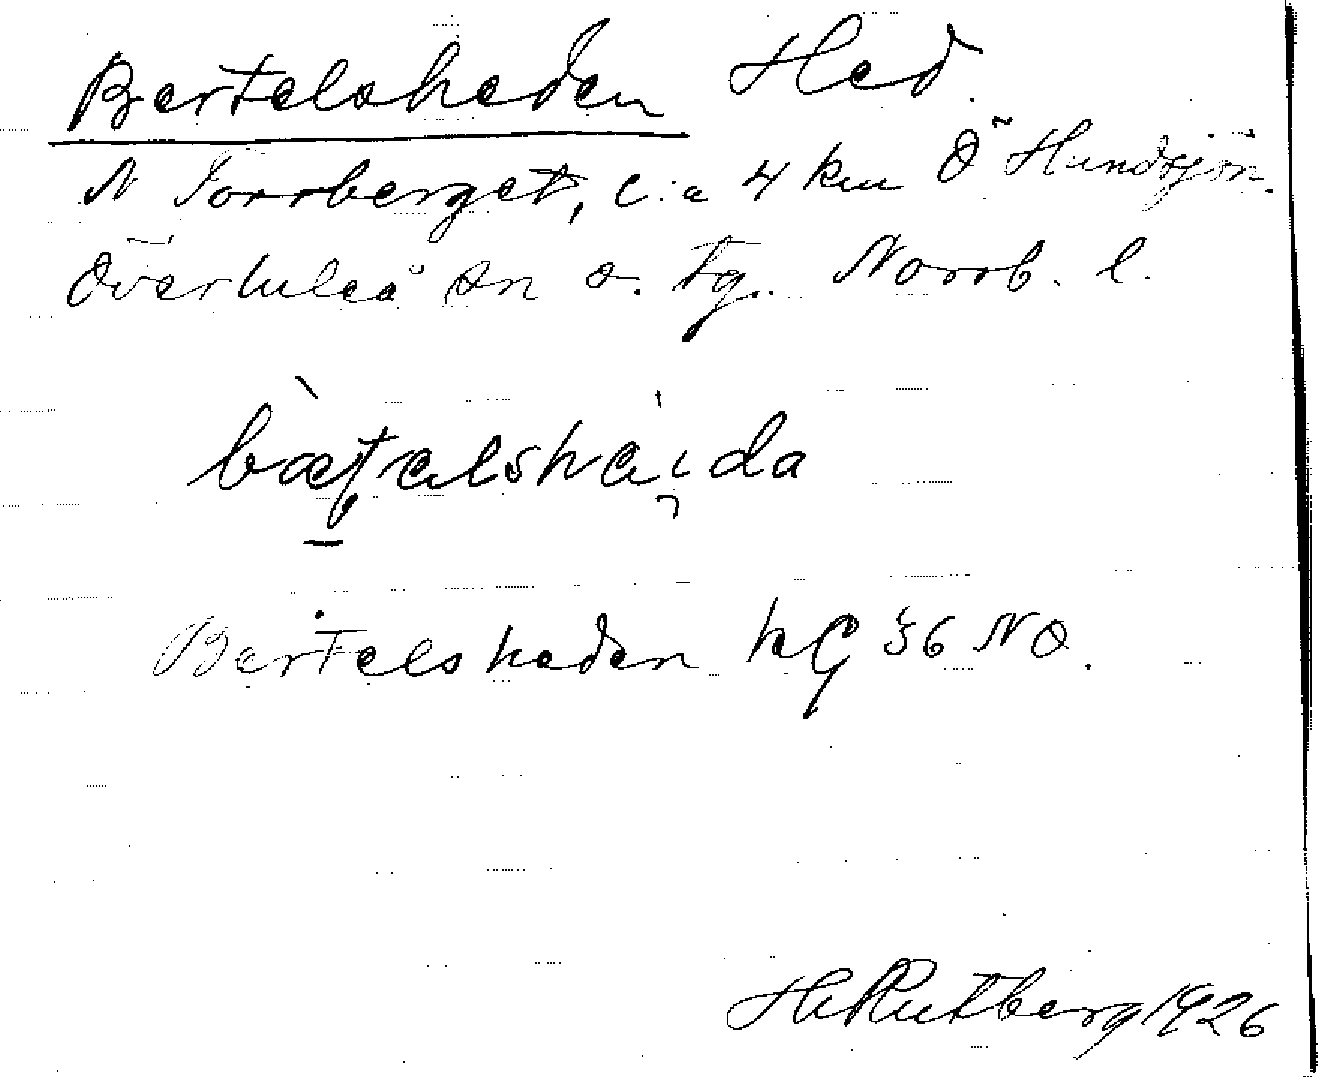 Bertelsheden Hed.
N Torrberget, c:a 4 km Ö Hundsjön.
Överluleå sn o. tg. Norrb. l.
Bertelsheden hG 36 NO.
H Rutberg 1926